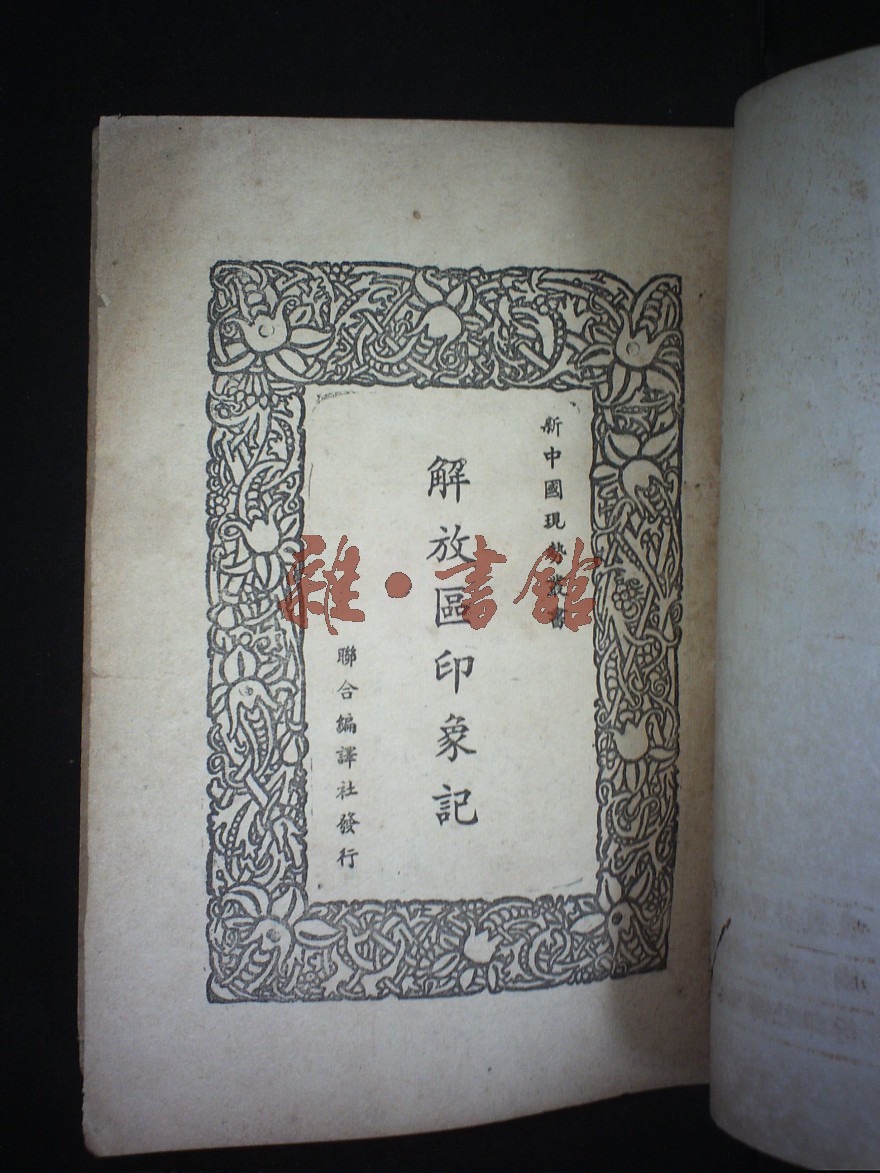 新中國現勢叢書
解放區印象記
聯合編譯社發行
雜·書館